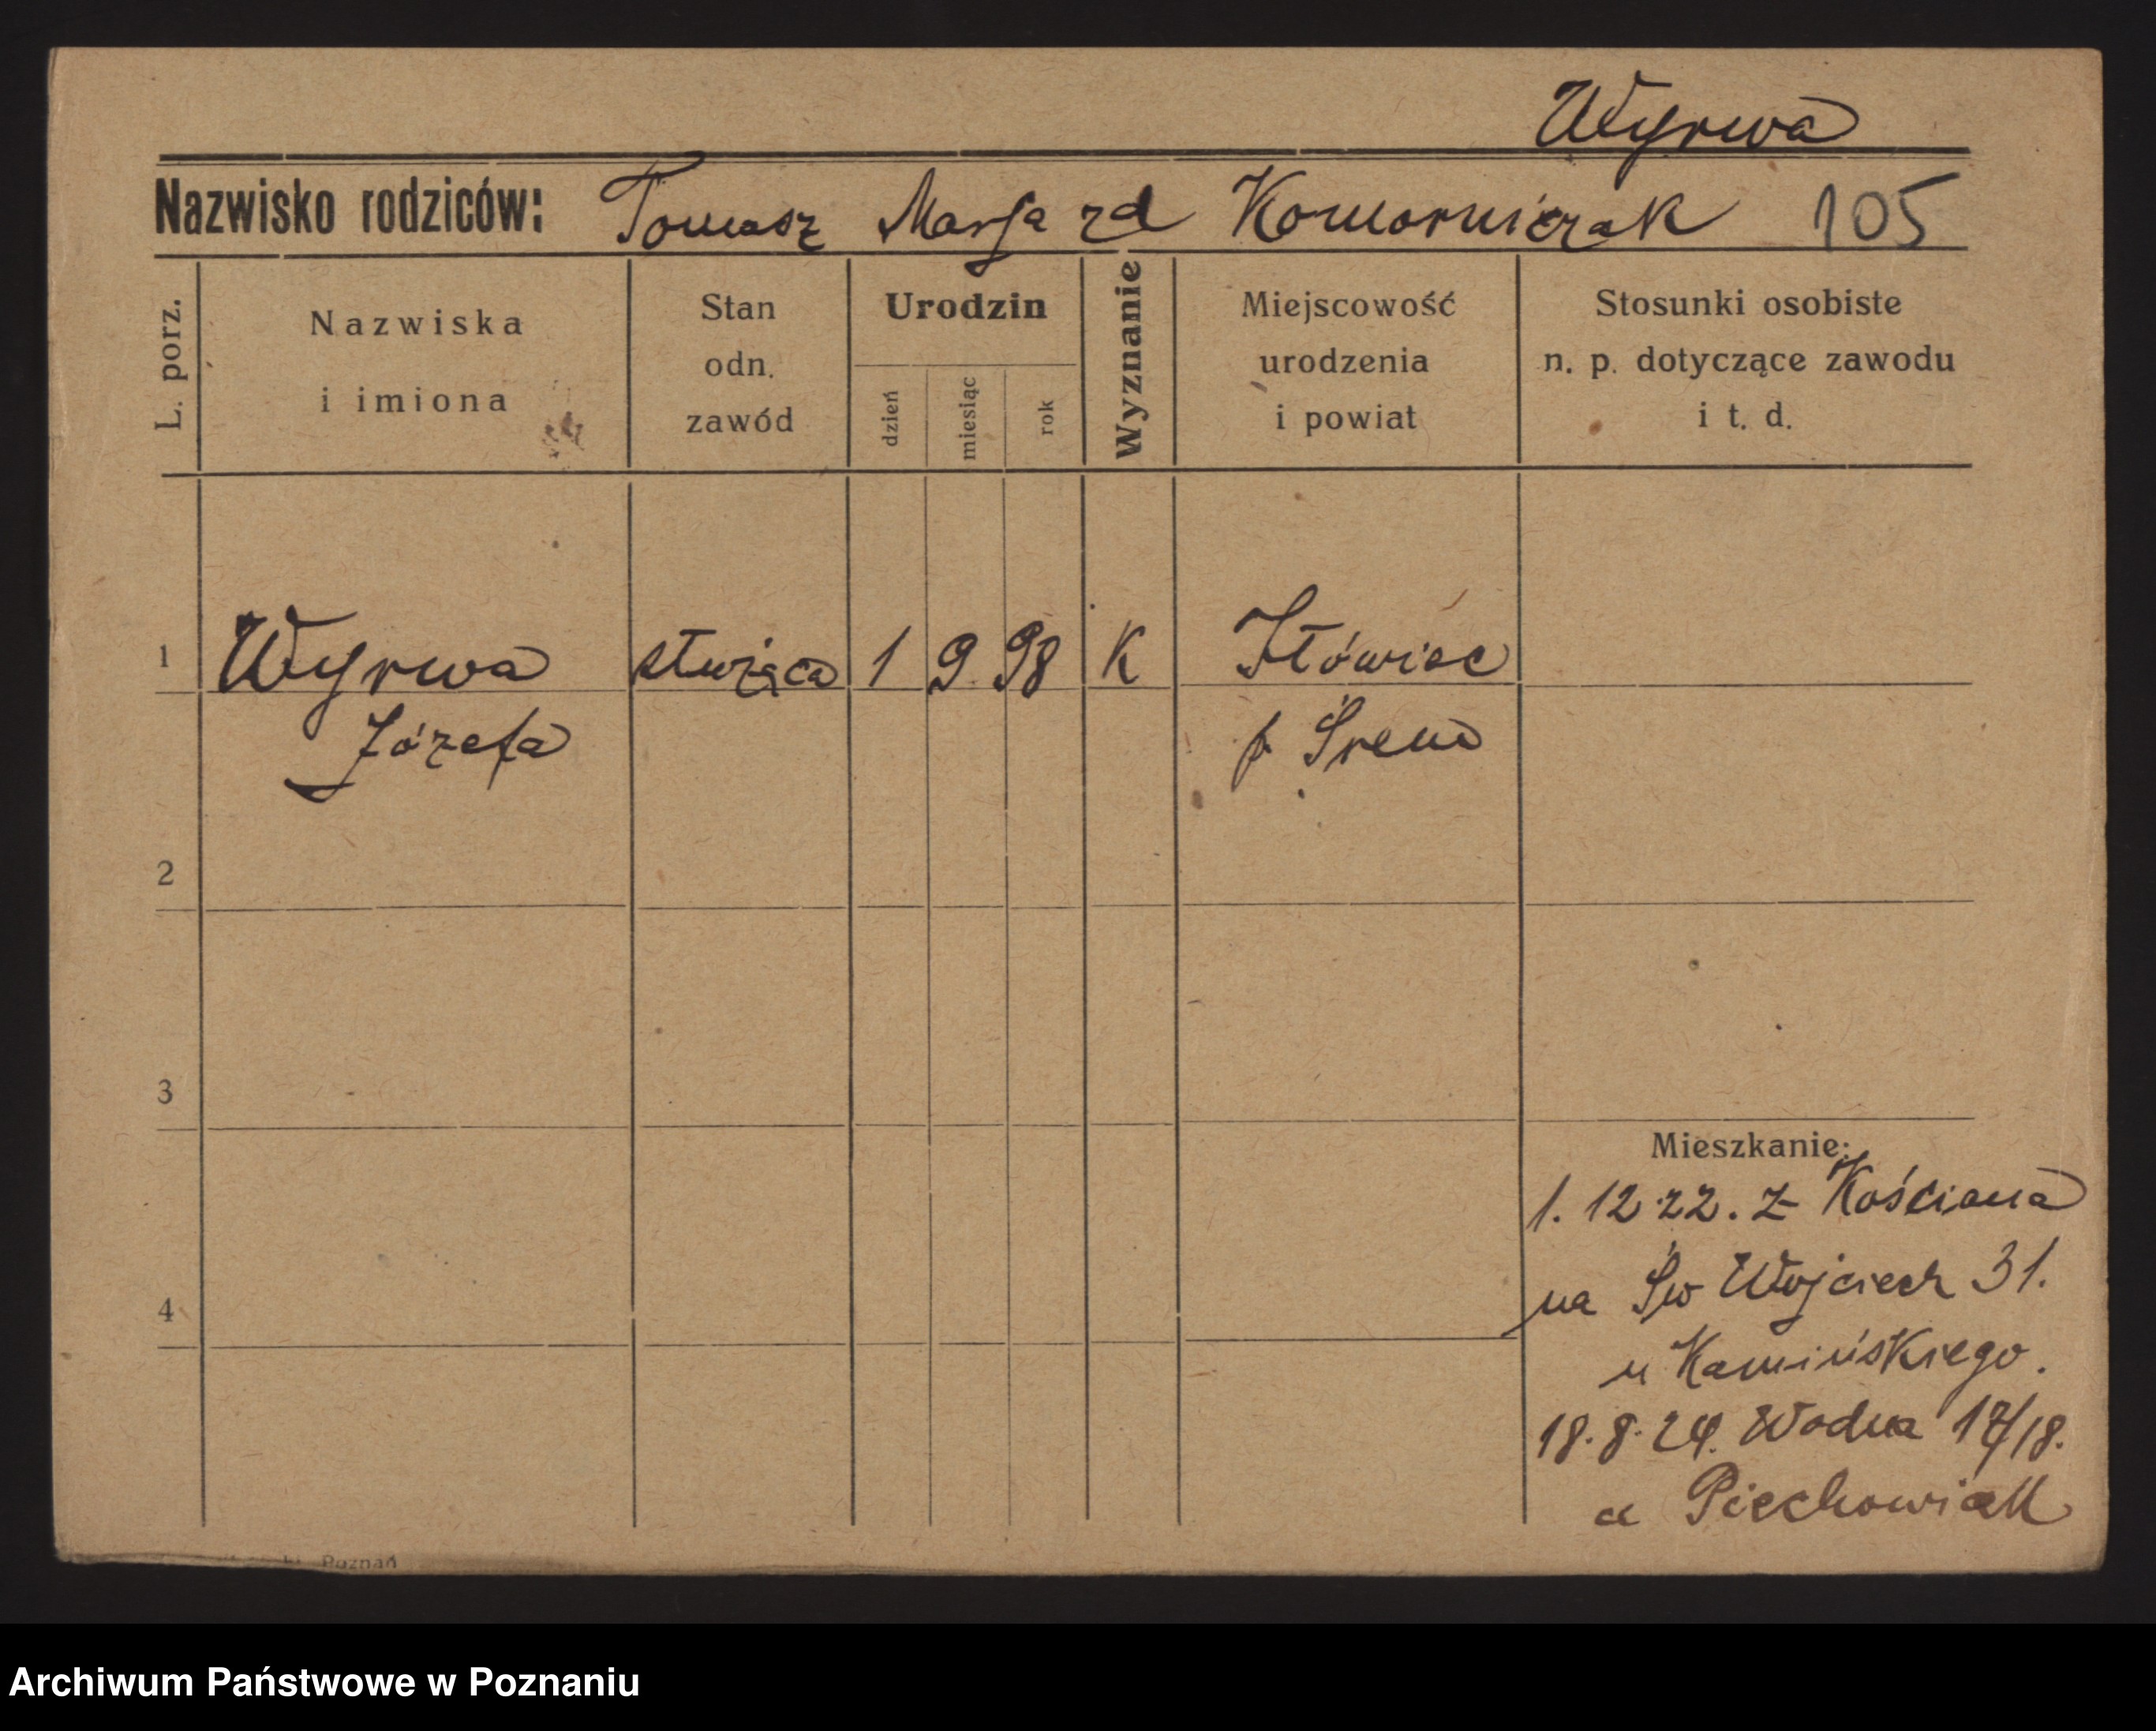 Wyrwa
Nazwisko rodziców: Tomasz Marja zd Komorniczak 105
L. porz.
Nazwiska
i imiona
Stan
odn.
zawód
Urodzin
dzień
miesiąc
rok
Wyznanie
Miejscowość
urodzenia
i powiat
Stosunki osobiste
n. p. dotyczące zawodu
i t. d.
1 Wyrwa służąca 1 9. 98 K Iłówiec
Józefa p Śrem
2
3
Mieszkanie:
1. 12 22. z Kościana
na Św Wojciech 31.
4
u Kamińskiego.
18. 8. 24. Wodna 17/18.
u Piechowiak
Poznań
Archiwum Państwowe w Poznaniu